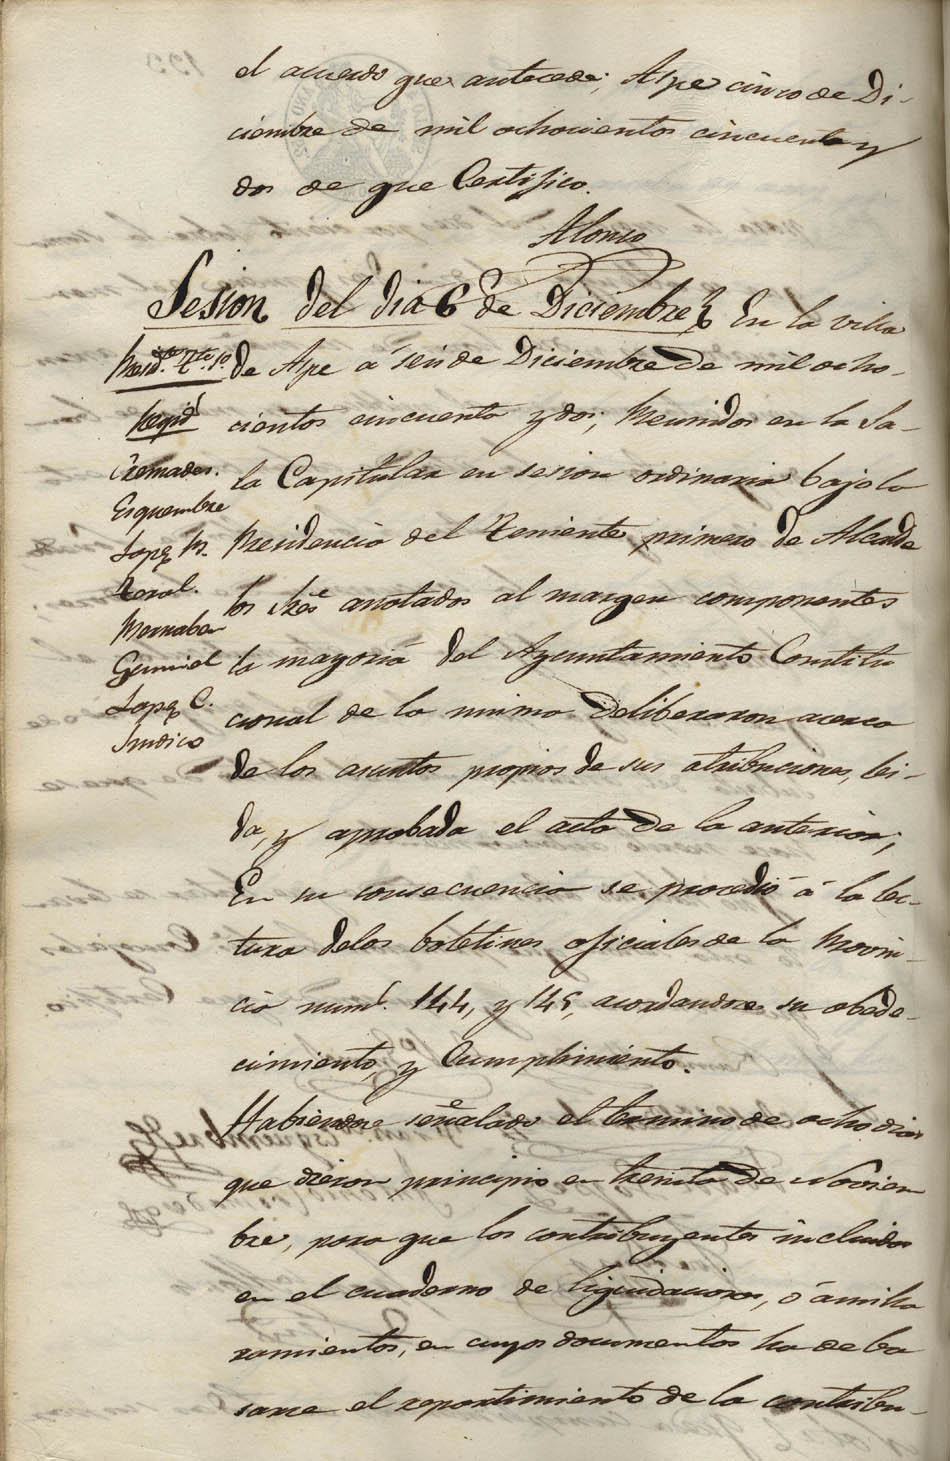 el acuerdo que antecede; Aspe cinco de Di-
ciembre de mil ochocientos cincuenta y
dos de que Certifico.
Alonso
Sesion del dia 6 de Diciembre En la villa
de Aspe á seis de Diciembre de mil ocho-
cientos cincuenta y dos; Reunidos en la Sa-
la Capitular en sesion ordinaria bajo la
Presidencia del Teniente primero de Alcalde
los Sres anotados al margen componentes
la mayoria del Ayuntamiento Constitu
cional de la misma Deliberaron acerca
de los asuntos propios de sus atribuciones, lei-
da, y aprobada el acta de la anterior;
En su consecuencia se procedió á la lec-
tura de los boletines oficiales de la Provin-
cia numl. 144, y 145, acordandose su obede-
cimiento, y Cumplimiento.
Habiendose señalado el termino de ocho dias
que dieron principio en treinta de Noviem
bre, para que los contribuyentes incluidos
en el cuaderno de liquidaciones, ó amilla
ramientos, en cuyos documentos ha de ba
sarse el repartimiento de la contribu-
Presidte. Tte. 1o.
Regidl
Cremades.
Esquembre
Lopez M.
Toral.
Mernaber
Gumiel
Lopez C.
Sindico